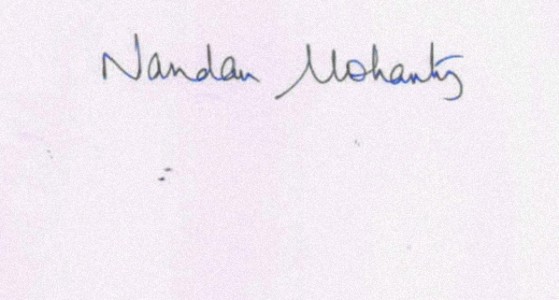 Nandan Mohanty